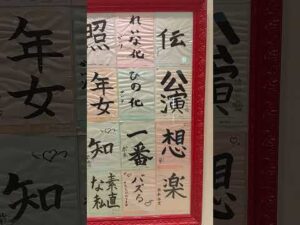 伝
公演
想
楽
れな化
ひの化
一番
バズる
照
年女
知
素直な私